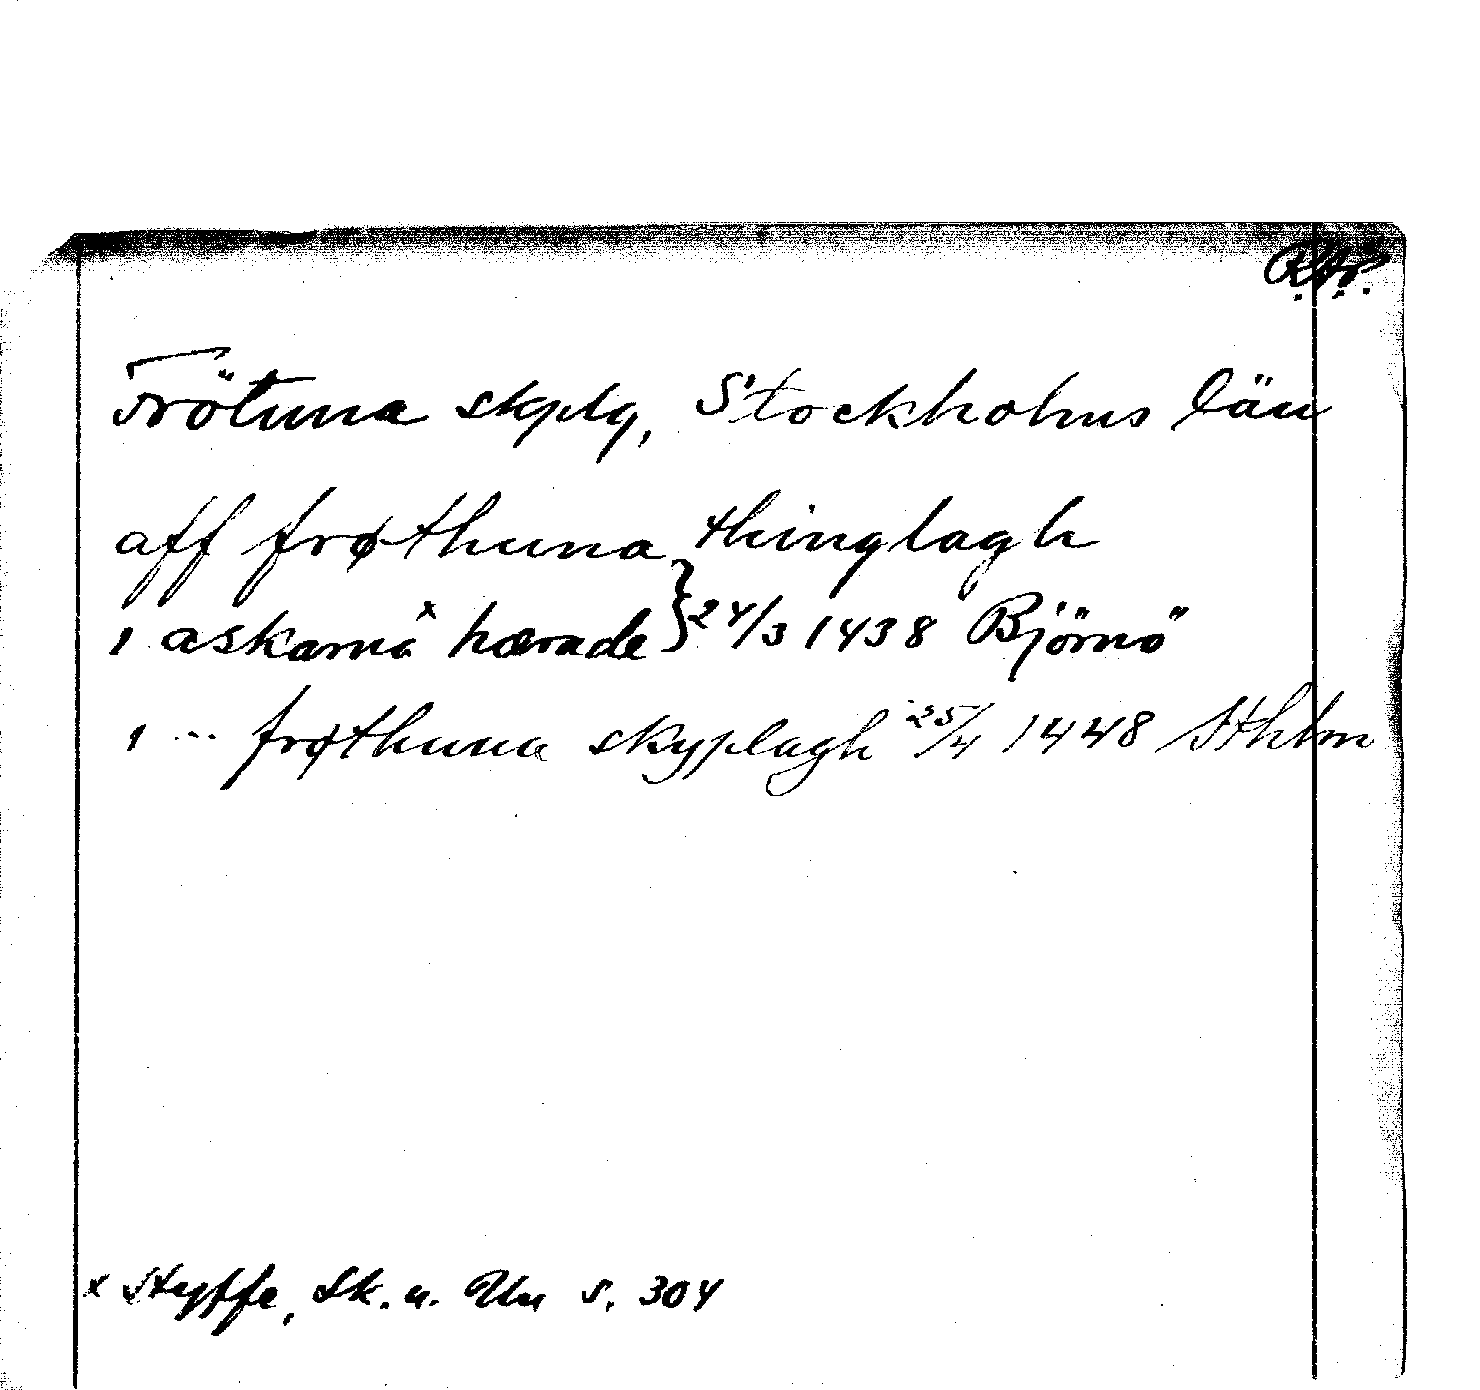 R.A.P.
Frötuna skplg, Stockholms län
aff frøthuna thinglagh
ı askarnå x hærade } 24/3 1438 Björnö
ı ... frøthuna skyplagh 25/4 1448 Sthlm
x Styffe, Sk. u. Un s. 304